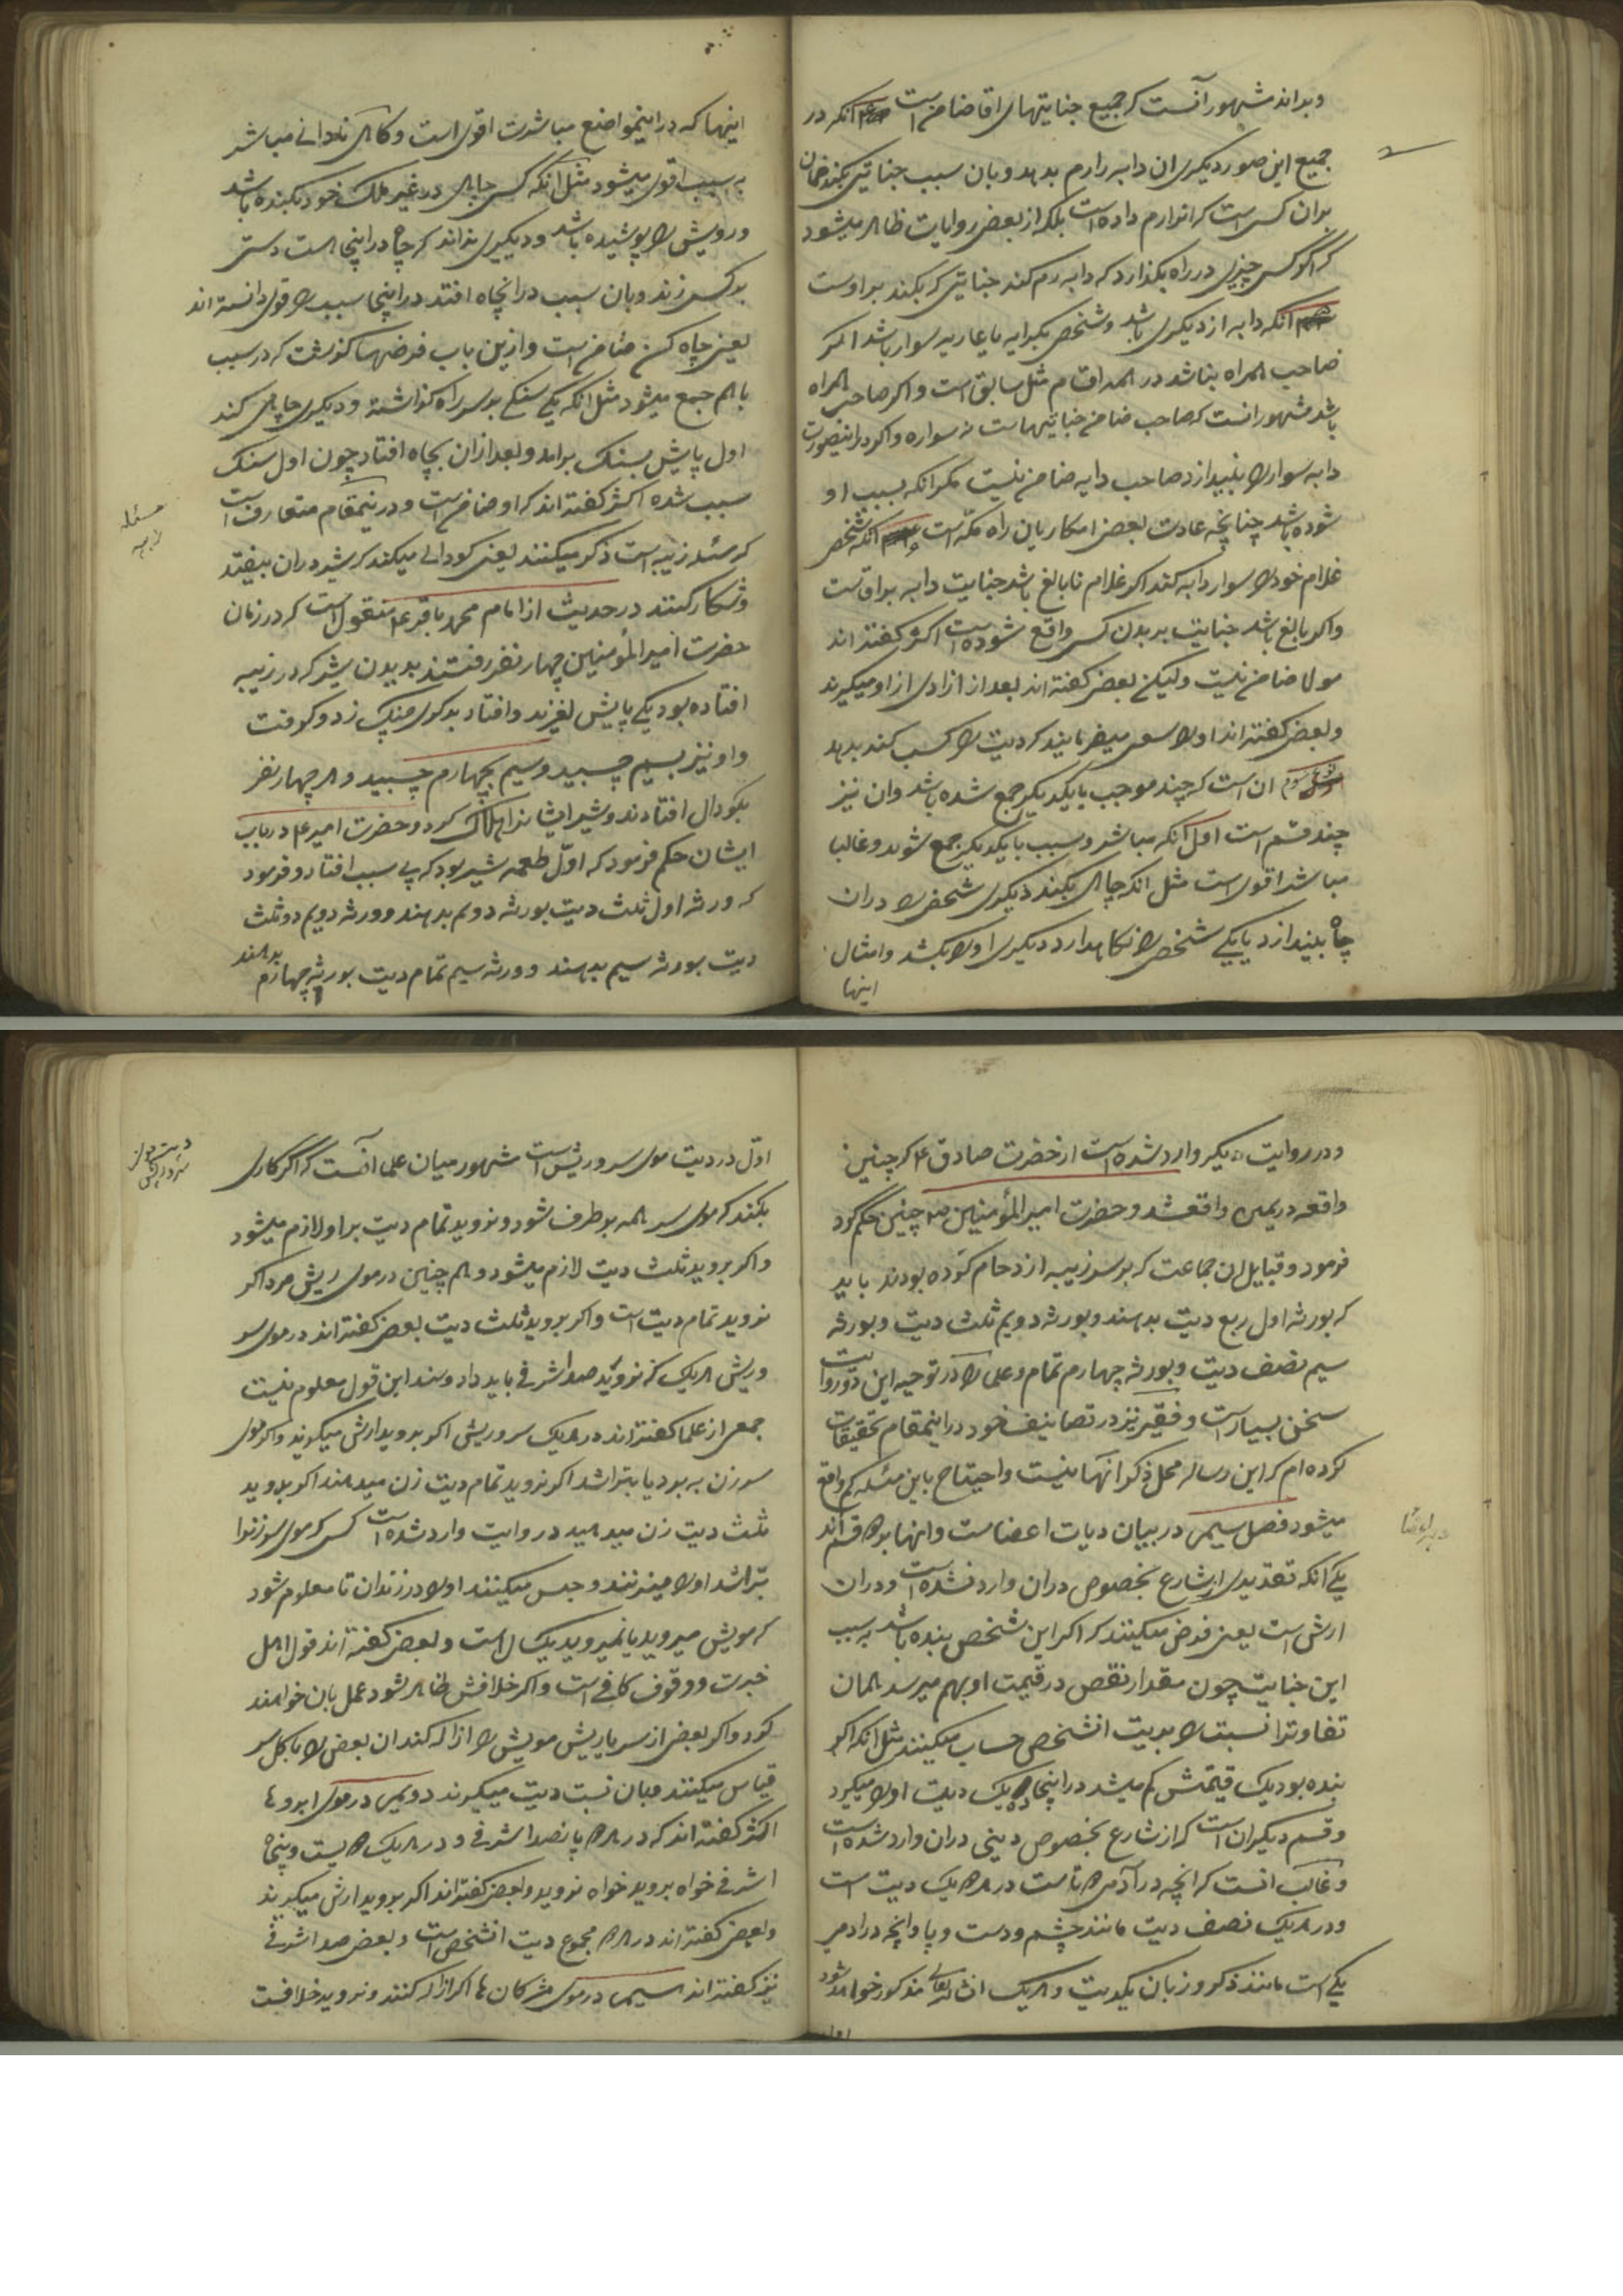 و بداند مشهور آنست که جمیع جنایتهای اقا ضامن است انکه در
جمیع این صور دیگری ان دابه را رم بدهد و بان سبب جنایتی بکند ضمان
بران کسی است که انرا رم داده است بلکه از بعض روایات ظاهر میشود
که اگر کسی چیزی در راه بگذارد که دابه رم کند جنایتی که بکند بر اوست
انکه دابه از دیگری باشد و شخصی بکرایه یا عاریه سوار باشد اگر
صاحب همراه نباشد در همه اقسام مثل سابق است و اگر صاحب همراه
باشد مشهور انست که صاحب ضامن جنایتهاست نه سواره و اگر در اینصورت
دابه سوار را بیندازد صاحب دابه ضامن نیست مگر انکه بسبب او
شوده باشد چنانچه عادت بعضی از مکاریان راه مکه است انکه شخصی
غلام خود را سوار دابه کند اگر غلام نابالغ باشد جنایت دابه بر اقاست
و اگر بالغ باشد جنایت بر بدن کسی واقع شوده است اکثر گفته اند
مولا ضامن نیست ولیکن بعضی گفته اند بعد از ازادی از او میگیرند
و بعضی گفته اند او را سعی میفرمایند که دیت را کسب کند بدهد
سوم ان است که چند موجب با یکدیگر جمع شده باشد و ان نیز
چند قسم است اول آنکه مباشر و سبب با یکدیگر جمع شوند و غالبا
مباشر اقوی است مثل انکه چاهی بکند دیگری شخصی را در ان
چاه بیندازد یا یکی شخصی را نگاهدارد دیگری او را بکشد و امثال
اینها
اینها که در اینمواضع مباشرت اقوی است و گاهی نادانی مباشر
سبب اقوی میشود مثل آنکه کسی چاهی در غیر ملک خود بکنده باشد
و رویش را پوشیده باشد و دیگری نداند که چاه در اینجا است دستی
بر کسی زند و بان سبب در انچاه افتد در اینجا سبب را قوی دانسته اند
یعنی چاه کن ضامن است و ازین باب فرضها گذشت که در سبب
با هم جمع میشود مثل انکه یکی سنگی بر سر راه گذاشته و دیگری چاهی کند
اول پایش بسنگ براید و بعد ازان بچاه افتاد چون اول سنگ
سبب شده اکثر گفته اند که او ضامن است و در اینمقام متعارف است
که مسئله زبیه است ذکر میکنند یعنی کودالی میکند که شیر در ان بیفتد
و شکار کنند در حدیث از امام محمد باقر ع منقول است که در زمان
حضرت امیر المؤمنین چهار نفر رفتند بدیدن شیر که در زبیه
افتاده بود یکی پایش لغزید و افتاد بدیگری چنگ زد و گرفت
و او نیز بسیم چسبید و سیم بچهارم چسبید و هر چهار نفر
بکودال افتادند و شیر ایشانرا هلاک کرد و حضرت امیر ع در باب
ایشان حکم فرمود که اول طعمه شیر بود که بی سبب افتاد و فرمود
که ورثه اول ثلث دیت بورثه دوم بدهند و ورثه دویم دو ثلث
دیت بورثه سیم بدهند و ورثه سیم تمام دیت بورثه چهارم بدهند
مسئله
زبیه
و در روایت دیگر وارد شده است از حضرت صادق ع که چنین
واقعه در یمن واقعشد و حضرت امیر المؤمنین ص چنین حکم کرد
فرمود و قبایل ان جماعت که بر سر زبیه ازدحام کرده بودند باید
که بورثه اول ربع دیت بدهند و بورثه دویم ثلث دیت و بورثه
سیم نصف دیت و بورثه چهارم تمام و علی را در توجیه این دو روایت
سخن بسیار است و فقیر نیز در تصانیف خود در اینمقام تحقیقات
کرده ام که این رساله محل ذکر انها نیست و احتیاج باین مسئله کم واقع
میشود فصل سیم در بیان دیات اعضاست و انها بر دو قسم اند
یکی آنکه تقدیری از شارع بخصوص دران وارد نشده است و دران
ارش است یعنی فرض میکنند که اگر این شخص بنده باشد بسبب
این جنایت چون مقدار نقص در قیمت او بهم میرسد همان
تفاوترا نسبت را بدیت انشخص حساب میکنند مثل انکه اگر
بنده بود یک قیمتش کم میشد در اینجا ده یک دیت او را میگیرد
و قسم دیگر ان است که از شارع بخصوص دینی دران وارد شده است
و غالب انست که انچه در آدمی دو تاست در هر دو یک دیت است
و در هر یک نصف دیت مانند چشم و دست و پا و انچه در ادمی
یکی است مانند ذکر و زبان یکدیت و هر یک انشاء الله تعالی مذکور خواهد شد
دیه اعضا
اول
اول در دیت موی سر و ریش است مشهور میان علما آنست که اگر کاری
بکنند که موی سر همه بر طرف شود و نروید تمام دیت بر او لازم میشود
و اگر بروید ثلث دیت لازم میشود و هم چنین در موی ریش مرد اگر
نروید تمام دیت است و اگر بروید ثلث دیت بعضی گفته اند در موی سر
و ریش هر یک که نروید صد اشرفی باید داد و سند این قول معلوم نیست
جمعی از علما گفته اند در هر یک سر و ریش اگر بروید ارش میگیرند و اگر موی
سر زن به برد یا بتراشد اگر نروید تمام دیت زن میدهند اگر بروید
ثلث دیت زن میدهید در روایت وارد شده است کسی که موی سر زنرا
بتراشد او را میزنند و حبس میکنند او را در زندان تا معلوم شود
که مویش میروید یا نمیروید یک سال است و بعضی گفته اند قول اهل
خبرت و وقوف کافی است و اگر خلافش ظاهر شود عمل بان خواهند
کرد و اگر بعضی از سر یا ریش مویش را ازاله کند ان بعض را با کل سر
قیاس میکنند و بان نسبت دیت میگیرند دویم در موی ابروها
اکثر گفته اند که در هر دو پانصد اشرفی و در هر یک دویست و پنجاه
اشرفی خواه بروید خواه نروید و بعضی گفته اند اگر بروید ارش میگیرند
و بعضی گفته اند در هر دو مجموع دیت انشخص است و بعضی صد اشرفی
نیز گفته اند سیم در موی مژگان ها اگر ازاله کنند و نروید خلافست
دیت موی
سر و ریش